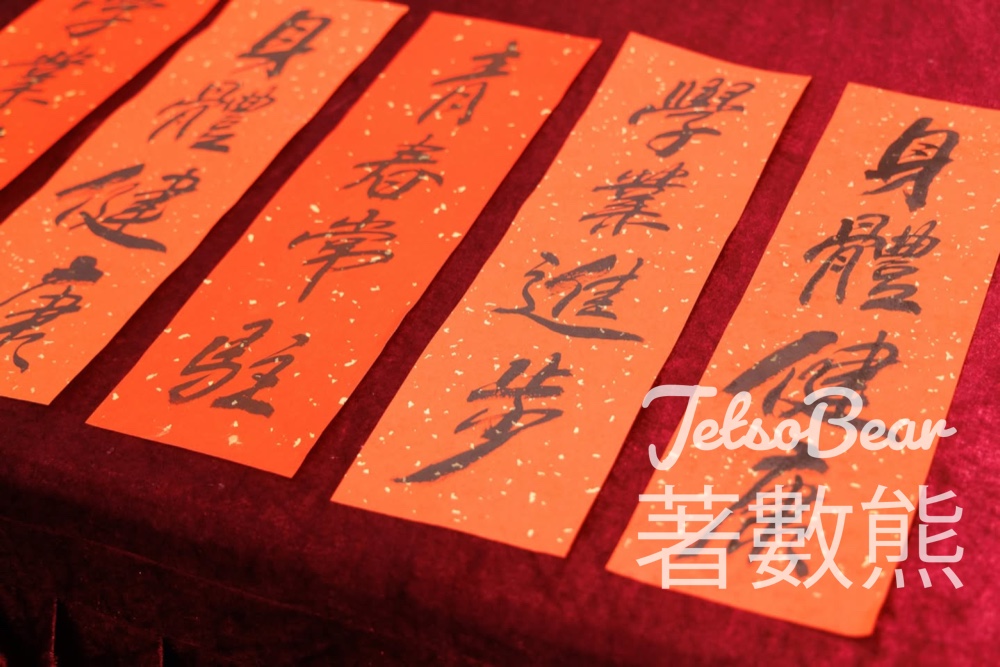 學業
身體健康
青春常駐
學業進步
身體健康
JetsoBear
著數熊